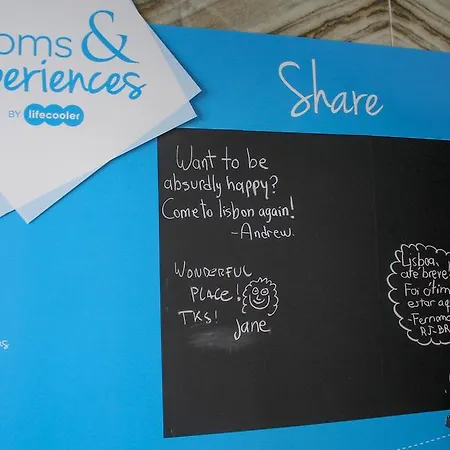 oms &
periences
BY lifecooler
Share
Want to be
absurdly happy?
Come to lisbon again!
-Andrew.
WONDERFUL
PLACE!
TKS!
Jane
Lisboa,
até breve
Foi ótim
estar aq
-Fernan
RJ-BR